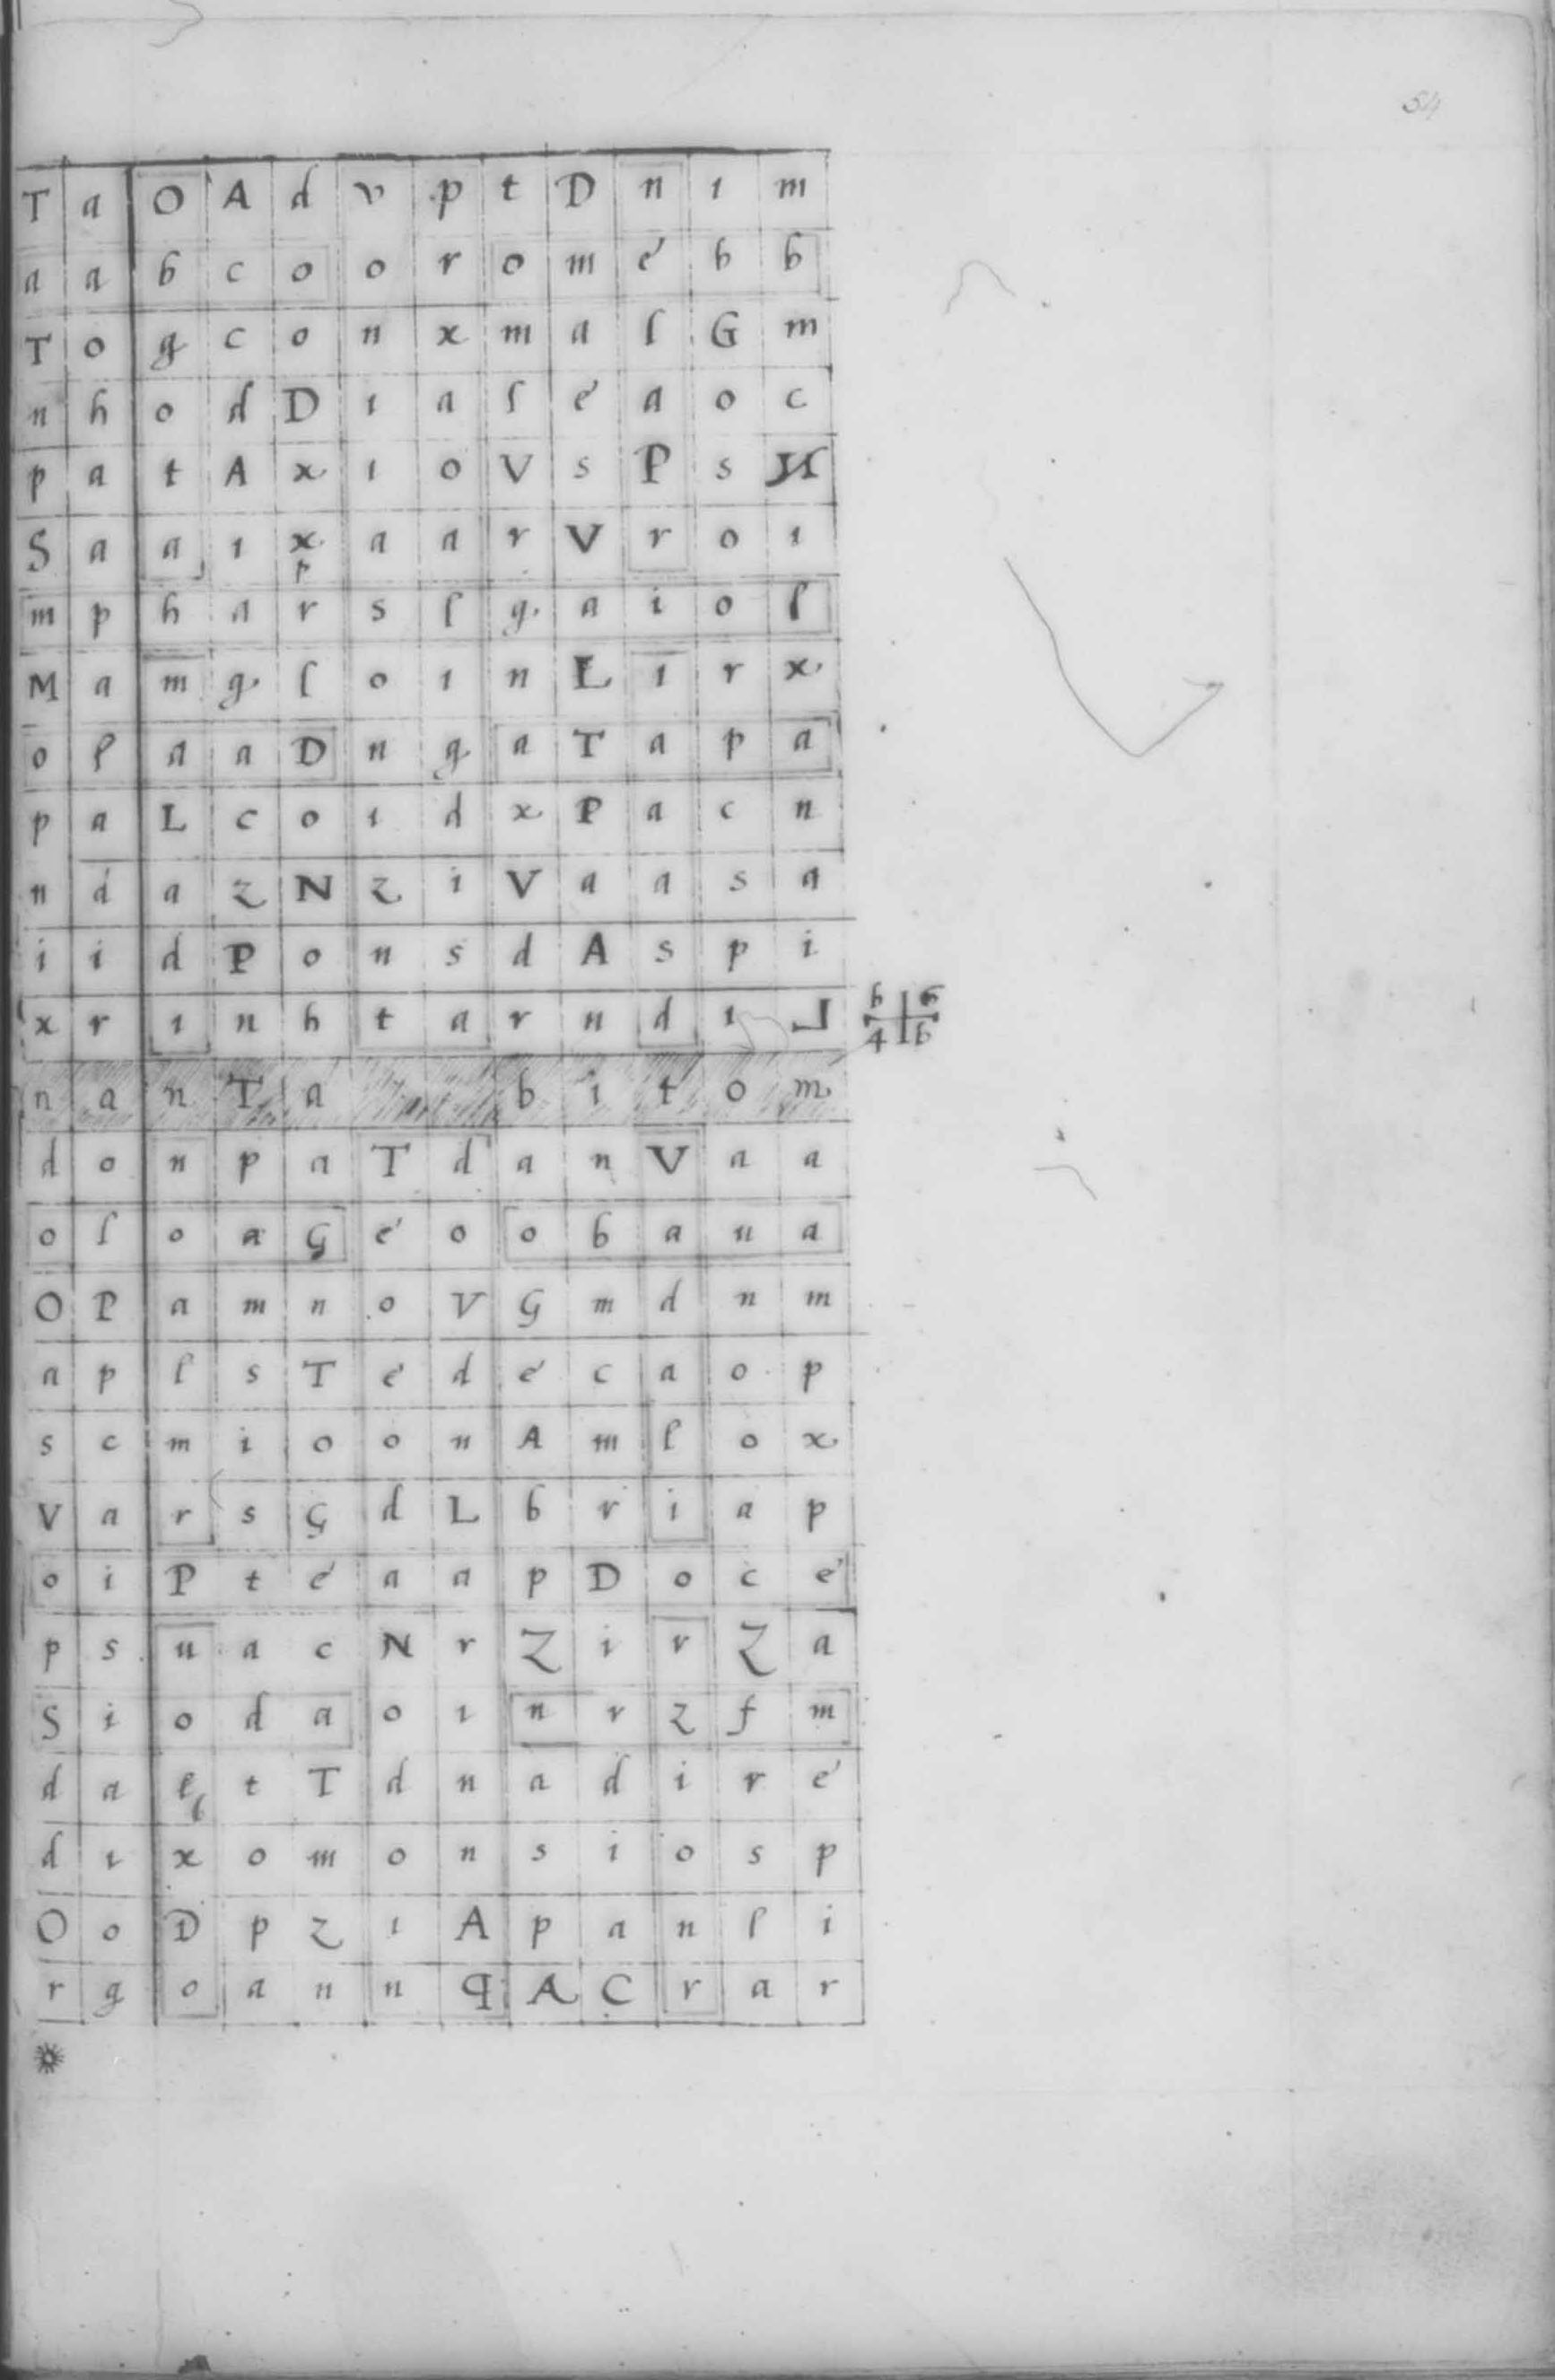 54
T a O A d v p t D n i m
a a b c o o r o m e b b
T o g c o n x m a l G m
n h o d D i a l e a o c
p a t A x i o V s P s И
S a a i x a a r V r o i
p
m p h a r s l g a i o l
M a m g l o i n L i r x
o l a a D n g a T a p a
p a L c o i d x P a c n
n d a z N z i V a a s a
i i d P o n s d A s p i
x r i n h t a r n d i ⅃ b 6
4 b
n a n T a b i t o m
d o n p a T d a n V a a
o l o a G e o o b a u a
O P a m n o V G m d n m
a p l s T e d e c a o p
s c m i o o n A m l o x
V a r s G d L b r i a p
o i P t e a a p D o c e
p s u a c N r Z i r Z a
S i o d a o i n r z f m
d a l t T d n a d i r e
d i x o m o n s i o s p
O o D p z i A p a n l i
r g o a n n ꟼ A C r a r